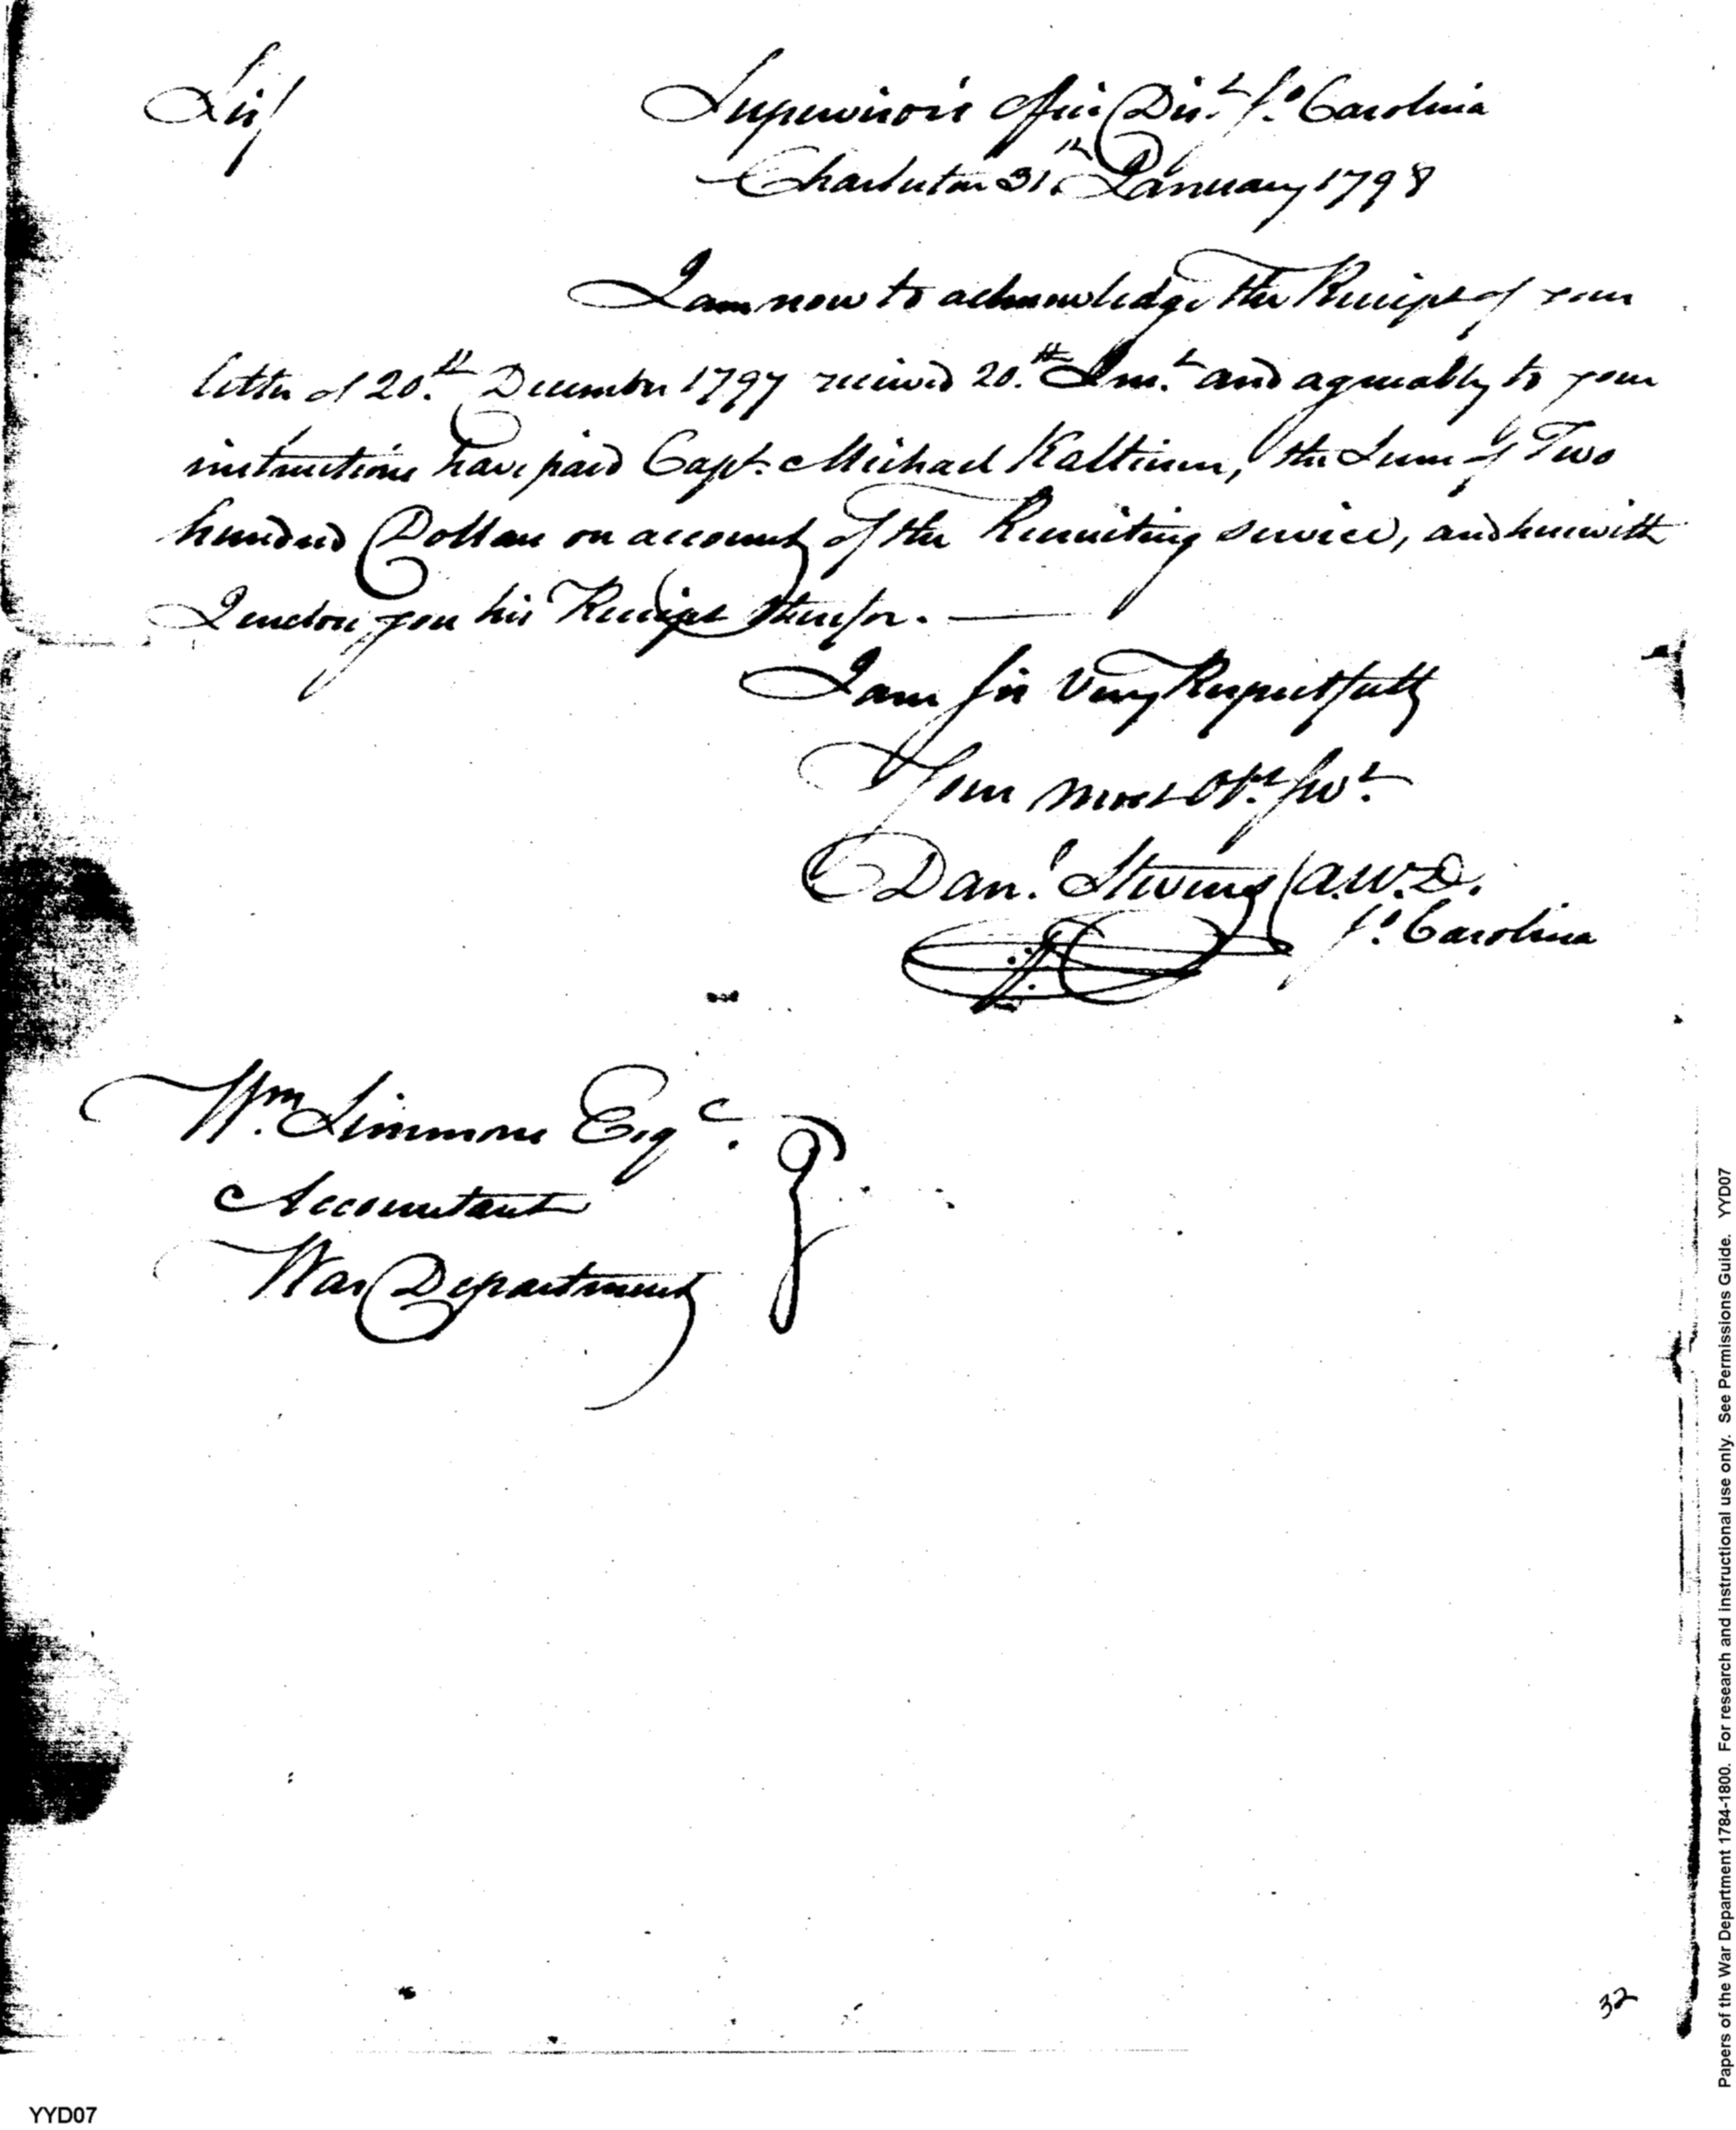 Sir/
Supervisor's office Dist. So. Carolina
Charleston 31st. January 1798
I am now to acknowledge the Receipt of your
letter of 20.th December 1797 received 20.th Inst. and agreeably to your
instructions have paid Capt. Michael Kalteisen, the Sum of Two
hundred Dollars on account of the Recruiting service, and herewith
I enclose you his Receipt therefor. —
I am Sir Very Respectfully
Your most Obt. Servt.
Danl. Stevens A.W.D.
So. Carolina
Wm. Simmons Esqr.
Accountant
War Department
32
YYD07
Papers of the War Department 1784-1800. For research and instructional use only. See Permissions Guide. YYD07